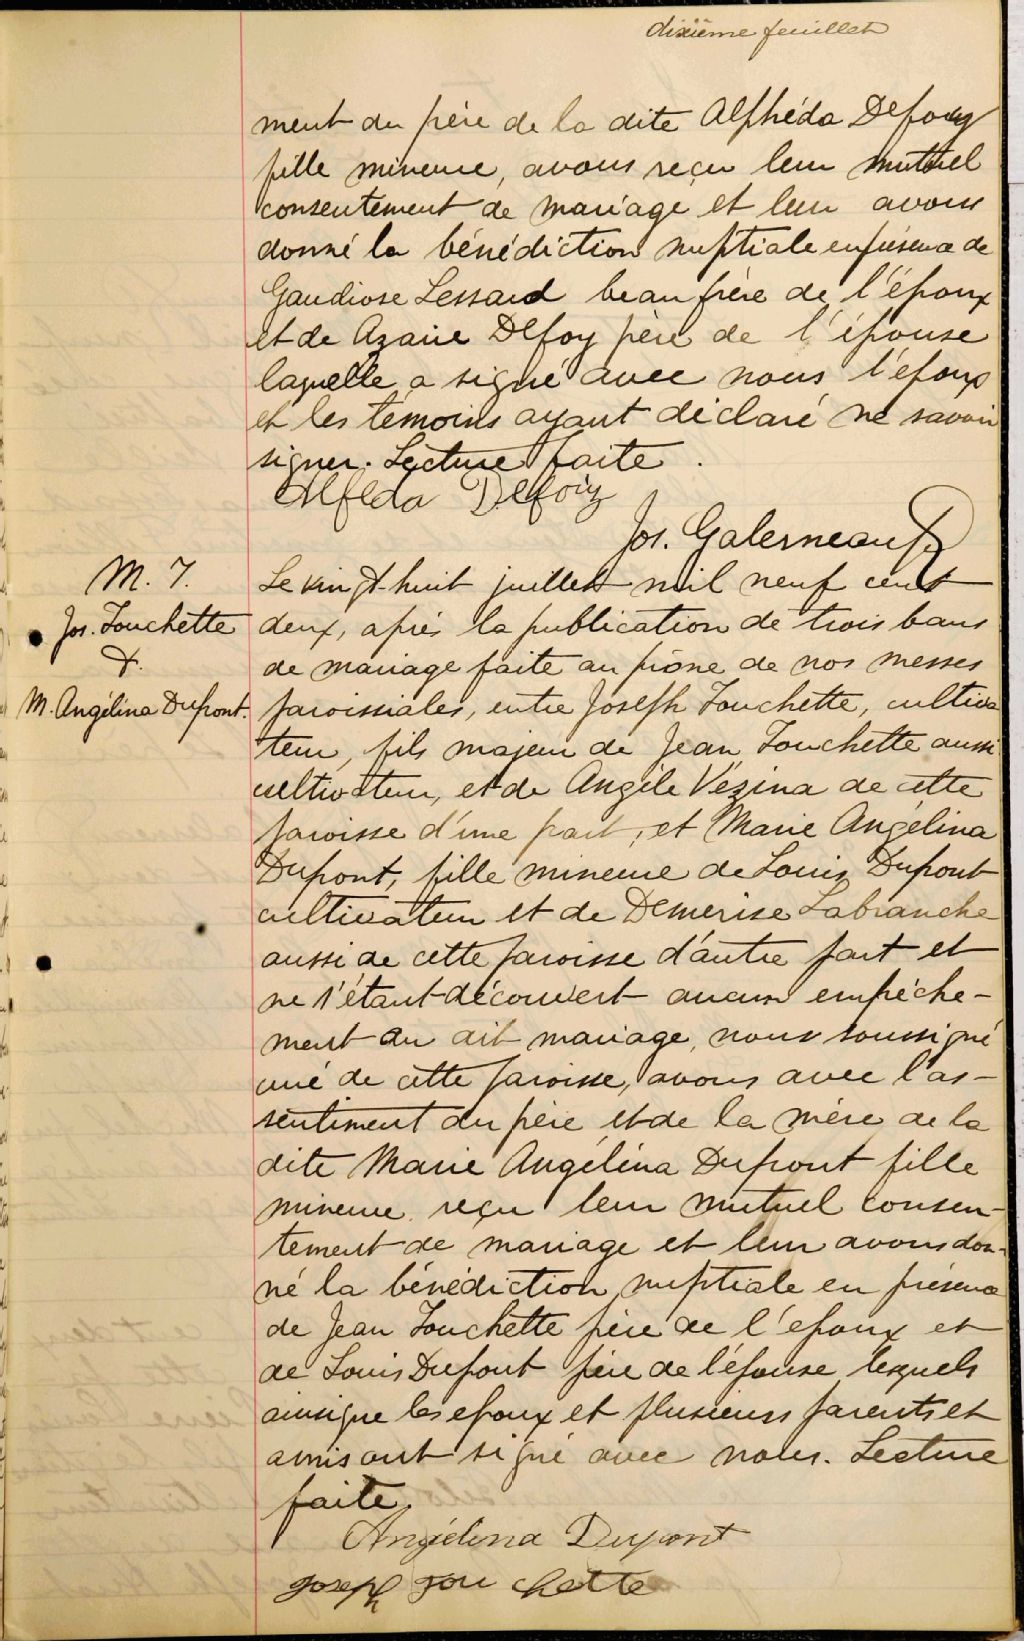 dixième feuillet
ment du père de la dite Alphéda Defoy
fille mineure, avons reçu leur mutuel
consentement de mariage et leur avons
donné la bénédiction nuptiale en présence de
Gaudiose Lessard beau frère de l'époux
et de Azarie Defoy père de l'épouse
laquelle a signé avec nous l'époux
et les témoins ayant déclaré ne savoir
signer. Lecture faite.
Alfeda Defoiy
Jos. Galerneau Ptr
M. 7.
Jos. Touchette
&.
M. Angélina Dupont.
Le vingt-huit juillet mil neuf cent
deux, après la publication de trois bans
de mariage faite au prône de nos messes
paroissiales, entre Joseph Touchette, cultiva
teur, fils majeur de Jean Touchette aussi
cultivateur, et de Angèle Vézina de cette
paroisse d'une part, et Marie Angélina
Dupont, fille mineure de Louis Dupont
cultivateur et de Demerise Labranche
aussi de cette paroisse d'autre part et
ne s'étant découvert aucun empêche-
ment au dit mariage, nous soussigné
curé de cette paroisse, avons avec l'as-
sentiment du père et de la mère de la
dite Marie Angélina Dupont fille
mineure reçu leur mutuel consen-
tement de mariage et leur avons don-
né la bénédiction nuptiale en présence
de Jean Touchette père de l'époux et
de Louis Dupont père de l'épouse lesquels
ainsi que les epoux et plusieurs parents et
amis ont signé avec nous. Lecture
faite.
Angélina Dupont
Joseph Tou chette